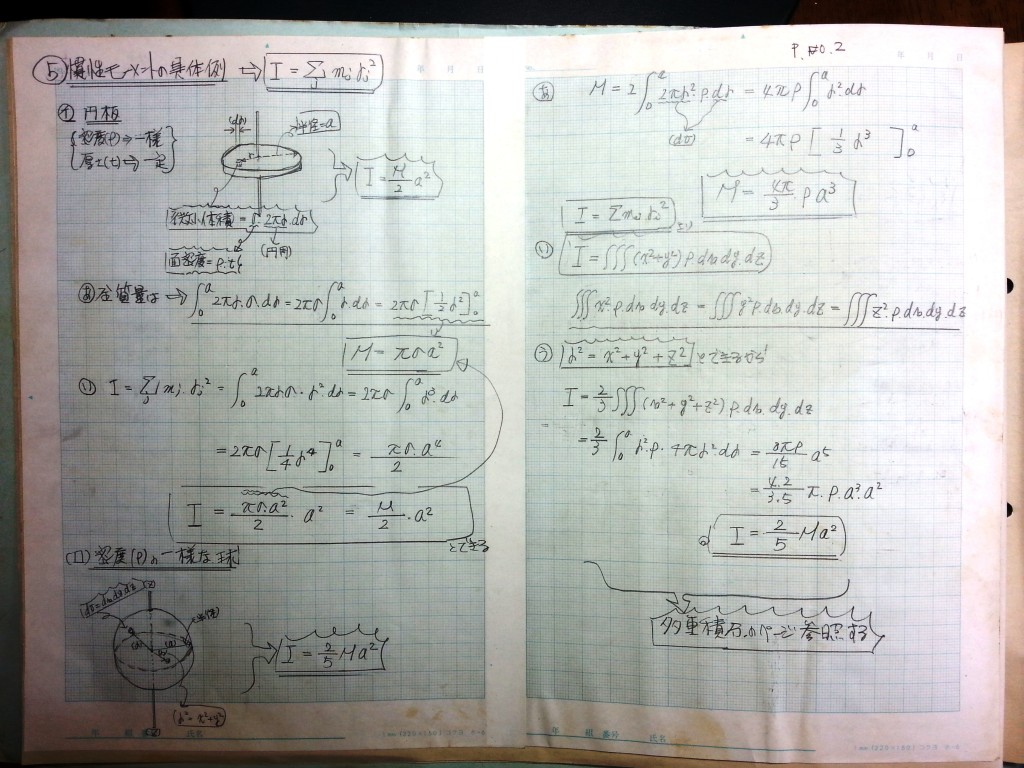 ⑤ 慣性モーメントの具体例 ⇒ I = Σ_j m_j r_j²
㋑ 円板
密度(ρ)⇒一様
厚土(t)⇒一定
(dr)
半径=a
I = M/2 a²
微小体積 = 2πr.dr
(円周)
面密度=ρ.t
㋐ 全質量は ⇒ ∫₀ᵃ 2πr.σ.dr = 2πσ ∫₀ᵃ r.dr = 2πσ [1/2 r²]₀ᵃ
M = πσa²
㋑ I = Σ_j m_j.r_j² = ∫₀ᵃ 2πrσ.r².dr = 2πσ ∫₀ᵃ r³.dr
= 2πσ [1/4 r⁴]₀ᵃ = πσ.a⁴/2
I = πσ.a²/2 . a² = M/2 . a²
とできる
(ロ) 密度(ρ)の一様な球
I = 2/5 Ma²
(r² = x²+y²)
年 組 番号 氏名
P. NO. 2
年 月 日
㋐ M = 2∫₀ᵃ 2πr² ρ.dr = 4πρ ∫₀ᵃ r².dr
(dv)
= 4πρ [1/3 r³]₀ᵃ
M = 4π/3 . ρa³
I = Σ m_j r_j² より
㋑ I = ∭(x²+y²) ρ.dx.dy.dz
∭x².ρ.dx.dy.dz = ∭y².ρ.dx.dy.dz = ∭z².ρ.dx.dy.dz
㋒ r² = x²+y²+z² とできるから
I = 2/3 ∭(x²+y²+z²) ρ.dx.dy.dz
= 2/3 ∫₀ᵃ r².ρ.4πr².dr = 8πρ/15 a⁵
= 4.2/3.5 π.ρ.a³.a²
I = 2/5 Ma²
多重積分のページ参照する
年 組 番号 氏名